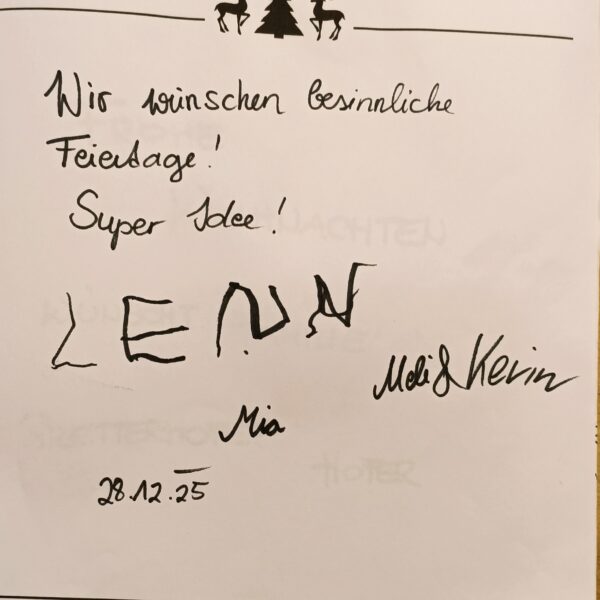 Wir wünschen besinnliche
Feiertage!
Super Idee!
LENN
Meli & Kevin
Mia
28.12.25